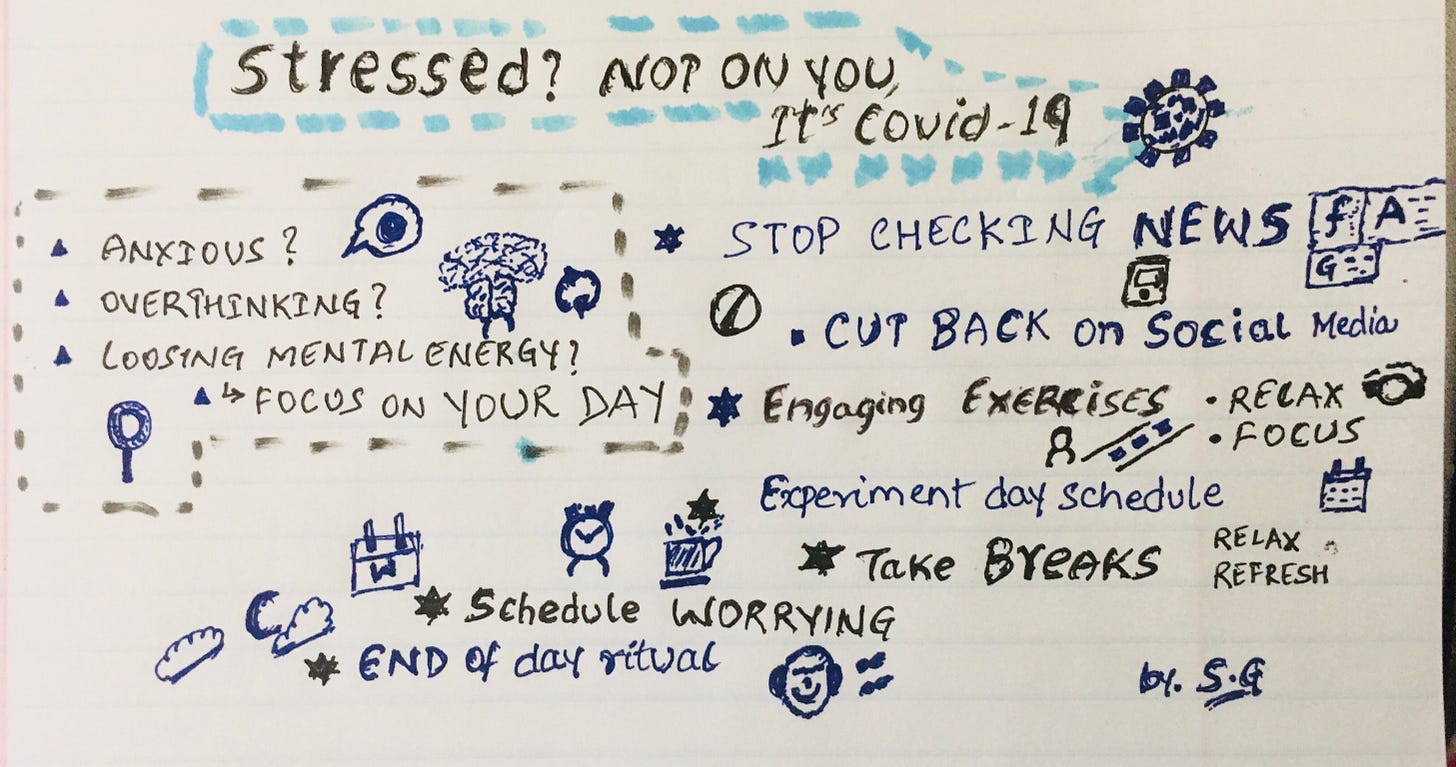 Stressed? NOT ON YOU,
It's Covid-19
ANXIOUS?
OVERTHINKING?
LOOSING MENTAL ENERGY?
FOCUS ON YOUR DAY
STOP CHECKING NEWS
f A
G
CUT BACK on Social Media
Engaging EXERCISES
• RELAX
• FOCUS
Experiment day schedule
Take BREAKS
RELAX
REFRESH
W
Schedule WORRYING
END Of day ritual
by. S.G